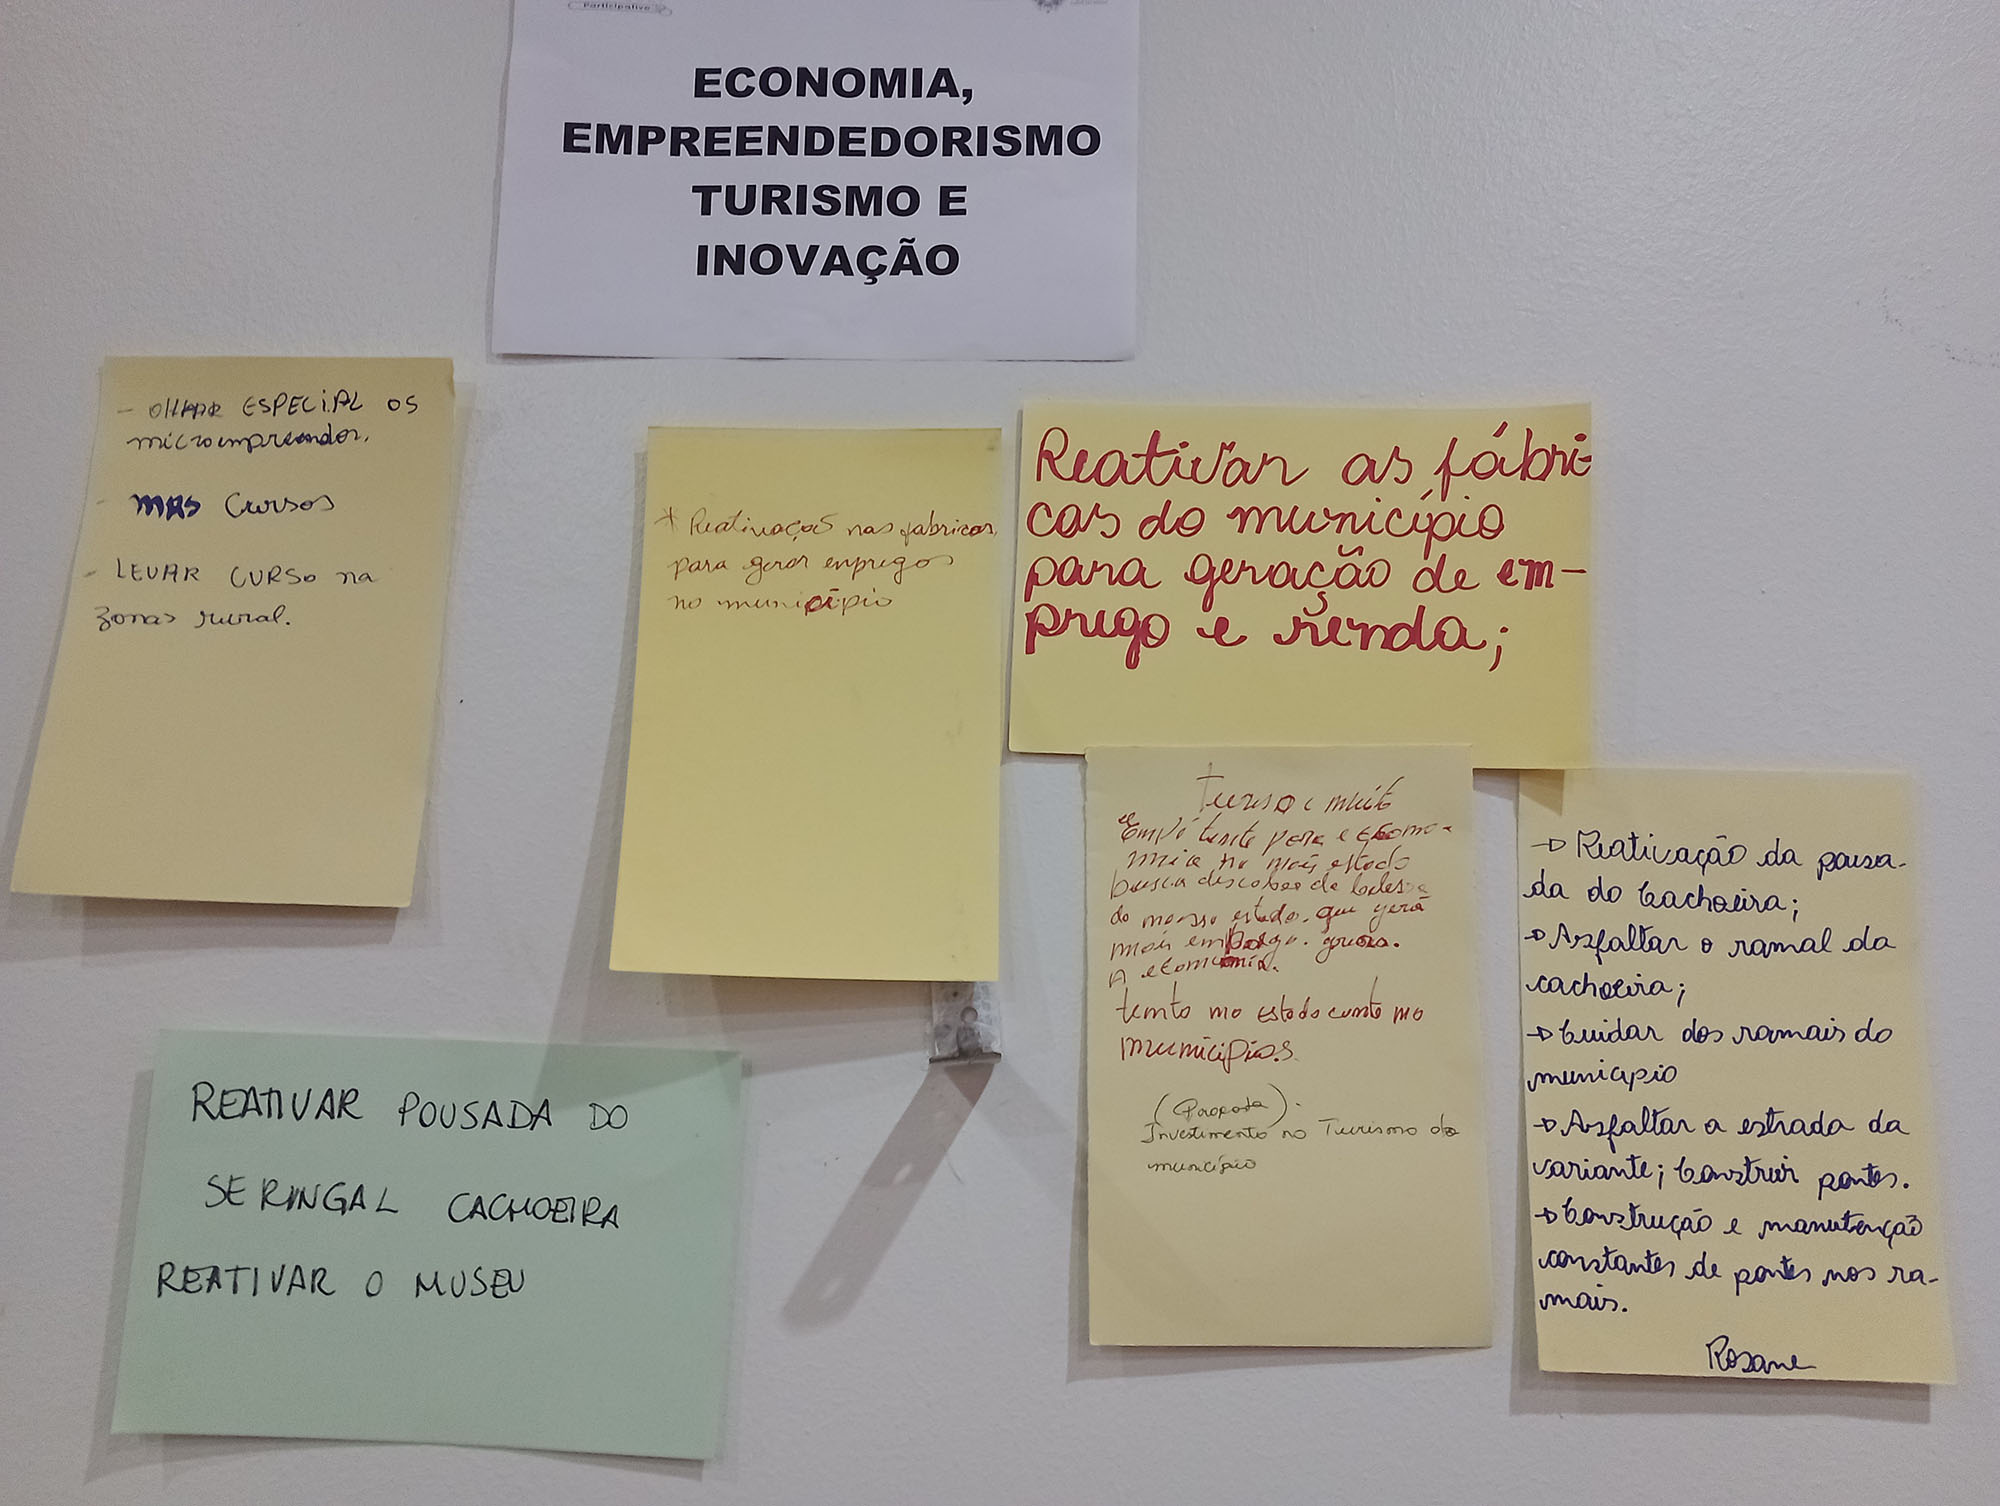 Participativo
ECONOMIA,
EMPREENDEDORISMO
TURISMO E
INOVAÇÃO
- OLHAR ESPECIAL OS
microempreendor.
- MAS Cursos
- LEVAR CURSO na
zonas rural.
* Reativação nas fabricas,
para gerar empregos
no município
Reativar as fábri-
cas do município
para geração de em-
prego e renda;
REATIVAR POUSADA DO
SERINGAL CACHOEIRA
REATIVAR O MUSEU
muito
para e
mais estado
busca
do nosso estado. que gera
mais
A economia.
tanto no estado como no
municípios.
(Proposta).
Investimento no Turismo do
município
→ Reativação da pousa-
da do Cachoeira;
→ Asfaltar o ramal da
cachoeira;
→ Cuidar dos ramais do
municipio
→ Asfaltar a estrada da
variante; Construir pontes.
→ Construção e manutenção
constantes de pontes nos ra-
mais.
Rosane